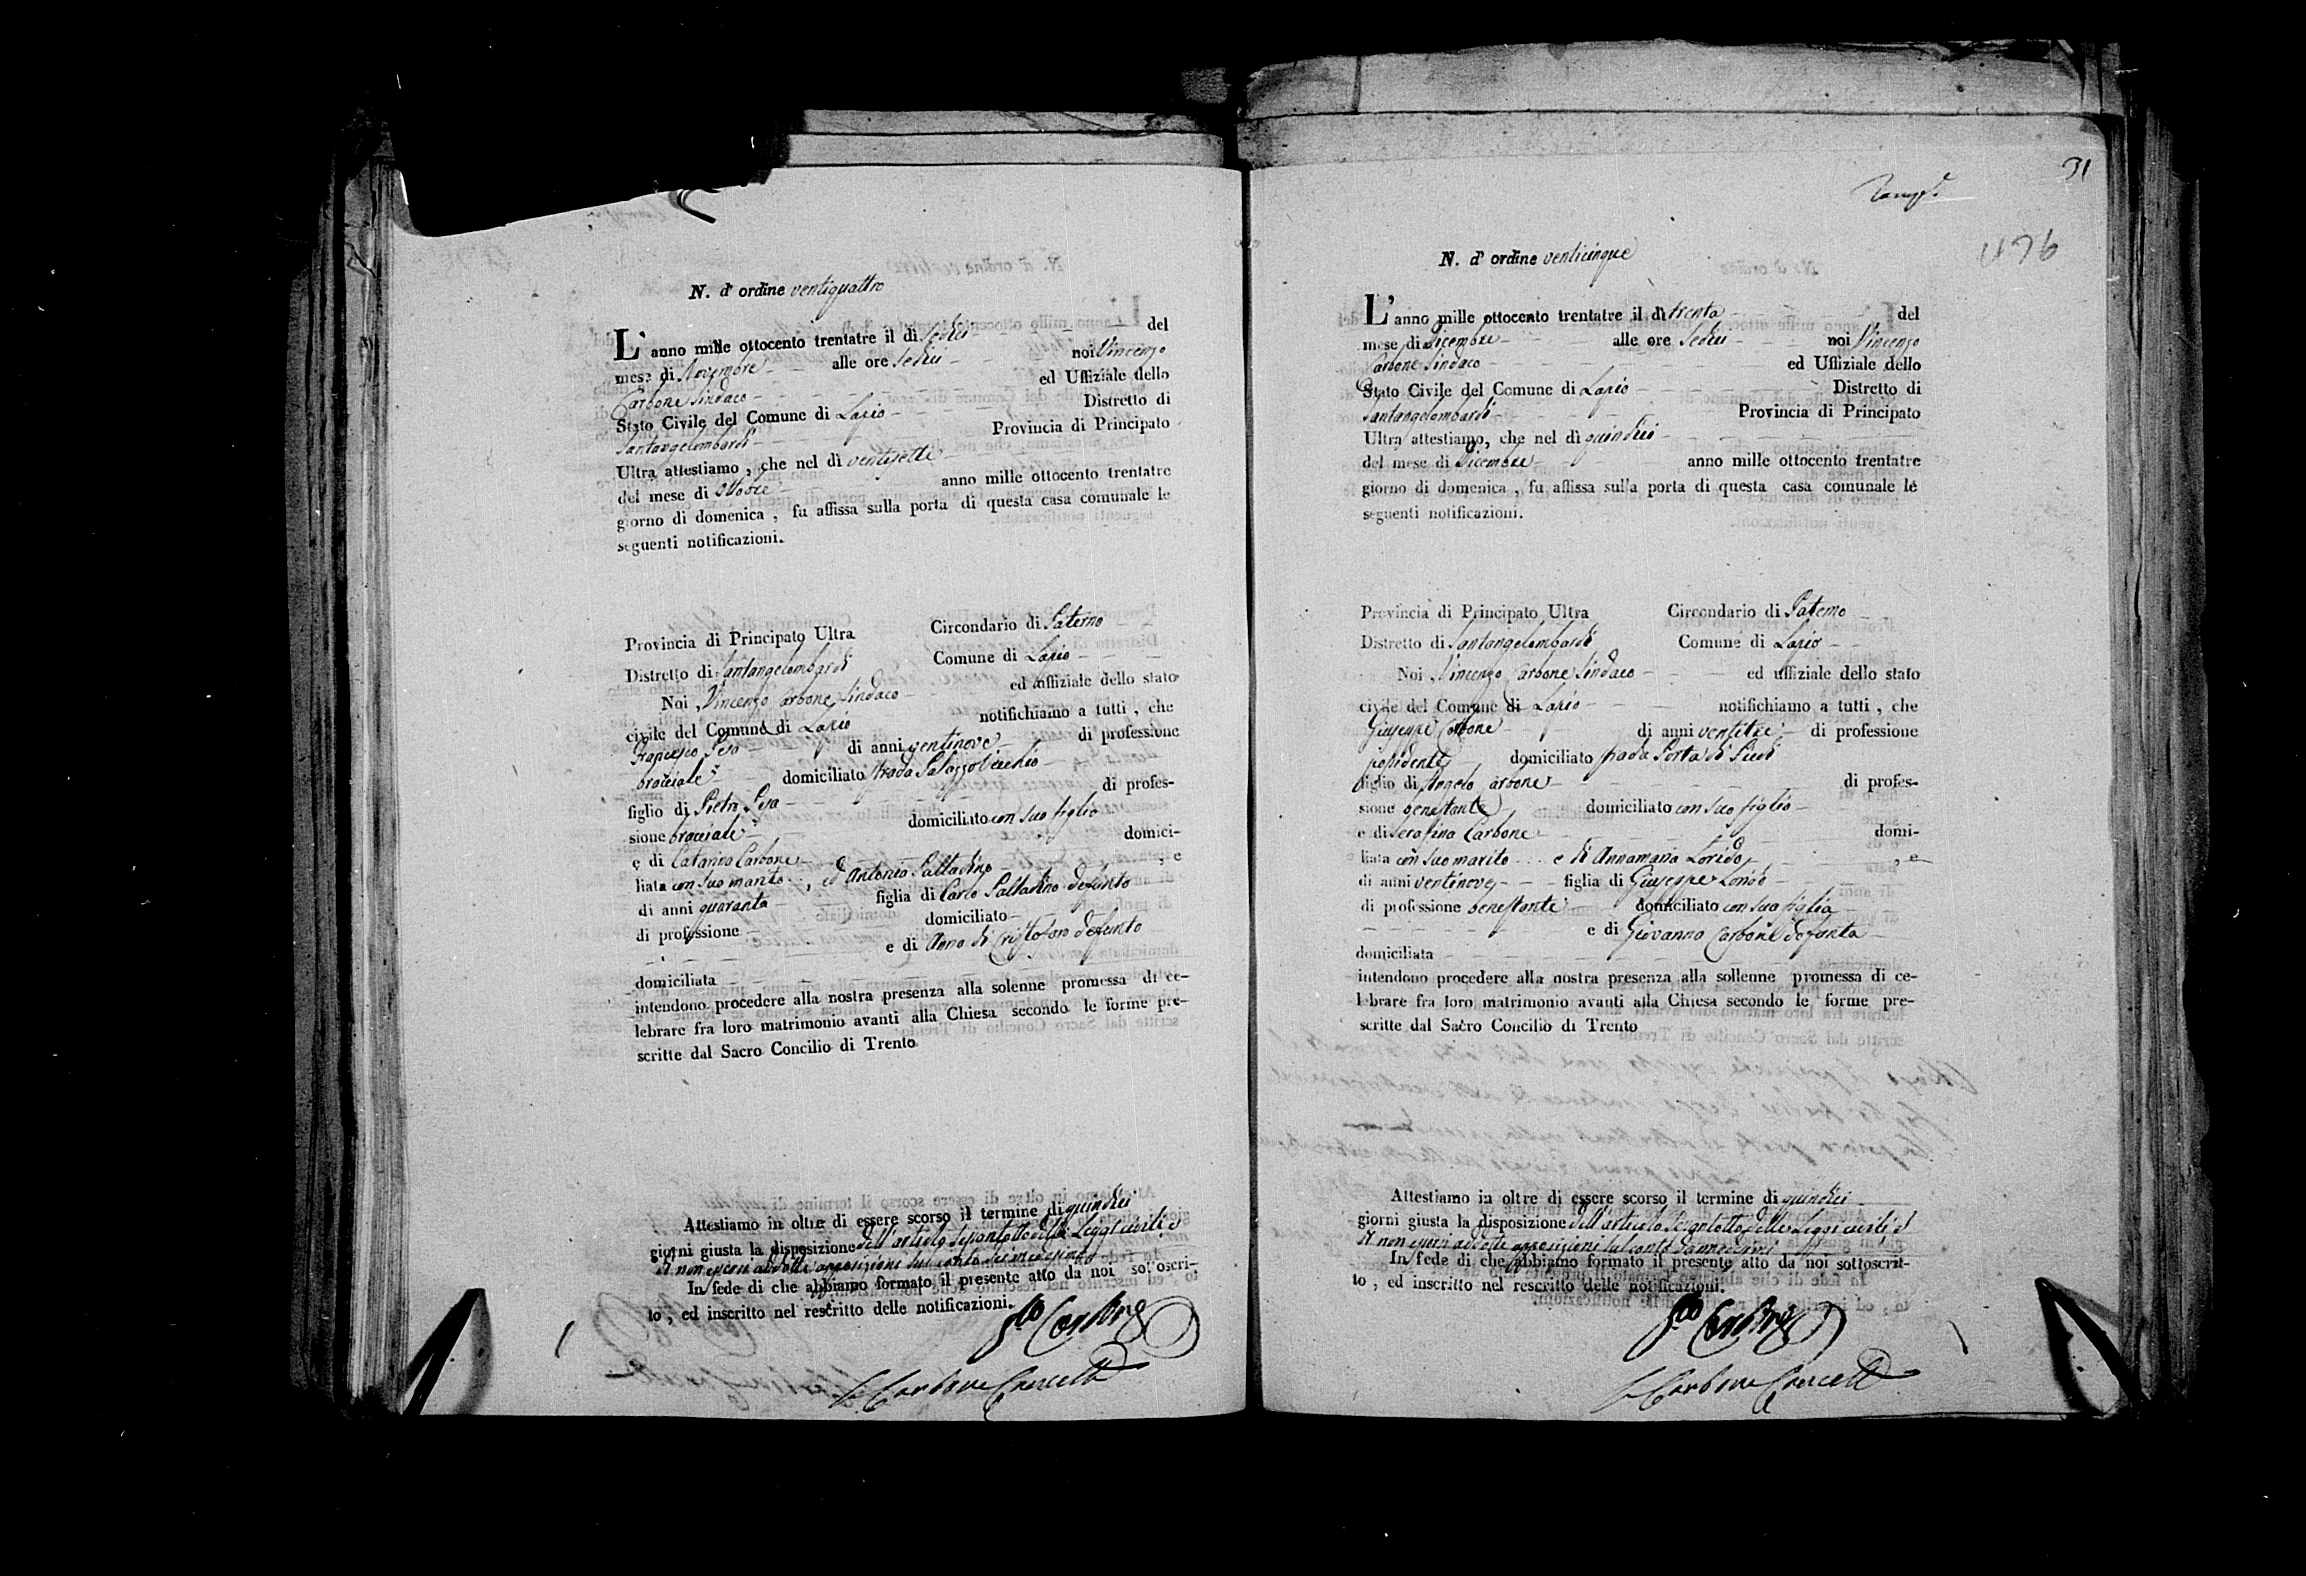 N. d' ordine ventiquattro
L' anno mille ottocento trentatre il dì Sedici del
mese di Novembre alle ore Sedici noi Vincenzo
Carbone Sindaco ed Uffiziale dello
Stato Civile del Comune di Lapio Distretto di
Santangelombardi Provincia di Principato
Ultra attestiamo, che nel dì ventisette
del mese di Ottobre anno mille ottocento trentatre
giorno di domenica, fu affissa sulla porta di questa casa comunale le
seguenti notificazioni.
Provincia di Principato Ultra Circondario di Paterno
Distretto di Santangelombardi Comune di Lapio
Noi Vincenzo Carbone Sindaco ed uffiziale dello stato
civile del Comune di Lapio notifichiamo a tutti, che
Francesco Pisa di anni ventinove di professione
bracciale domiciliato strada Palazzo Vecchio
figlio di Pietro Pisa di profes-
sione bracciale domiciliato con suo figlio
e di Catarina Carbone domici-
liata con suo marito, ed Antonia Palladino, e
di anni quaranta figlia di Carlo Palladino defunto
di professione domiciliato
e di Anna di Cristofaro defunta
domiciliata
intendono procedere alla nostra presenza alla solenne promessa di ce-
lebrare fra loro matrimonio avanti alla Chiesa secondo le forme pre-
scritte dal Sacro Concilio di Trento
Attestiamo in oltre di essere scorso il termine di quindici
giorni giusta la disposizione dell'articolo sessantotto delle Leggi civili, e
di non esservi addotte opposizioni sul conto dei medesimi
In fede di che abbiamo formato il presente atto da noi sottoscri-
to, ed inscritto nel rescritto delle notificazioni.
Carbone
Carbone
31
476
N. d' ordine venticinque
L' anno mille ottocento trentatre il dì trenta del
mese di Dicembre alle ore Sedici noi Vincenzo
Carbone Sindaco ed Uffiziale dello
Stato Civile del Comune di Lapio Distretto di
Santangelombardi Provincia di Principato
Ultra attestiamo, che nel dì quindici
del mese di Dicembre anno mille ottocento trentatre
giorno di domenica, fu affissa sulla porta di questa casa comunale le
seguenti notificazioni.
Provincia di Principato Ultra Circondario di Paterno
Distretto di Santangelombardi Comune di Lapio
Noi Vincenzo Carbone Sindaco ed uffiziale dello stato
civile del Comune di Lapio notifichiamo a tutti, che
Giuseppe Carbone di anni ventitre di professione
possidente domiciliato strada Porta di
figlio di Angelo Carbone di profes-
sione benestante domiciliato con suo figlio
e di Serafina Carbone domi-
liata con suo marito e di Annamaria Loriso, e
di anni ventinove figlia di Giuseppe Loriso
di professione benestante domiciliato con sua figlia
e di Giovanna Carbone defunta
domiciliata
intendono procedere alla nostra presenza alla sollenne promessa di ce-
lebrare fra loro matrimonio avanti alla Chiesa secondo le forme pre-
scritte dal Sacro Concilio di Trento
Attestiamo in oltre di essere scorso il termine di quindici
giorni giusta la disposizione dell'articolo sessantotto delle Leggi civili, e
di non esservi addotte opposizioni sul conto dei medesimi
In fede di che abbiamo formato il presente atto da noi sottoscrit-
to, ed inscritto nel rescritto delle notificazioni.
Carbone
Carbone